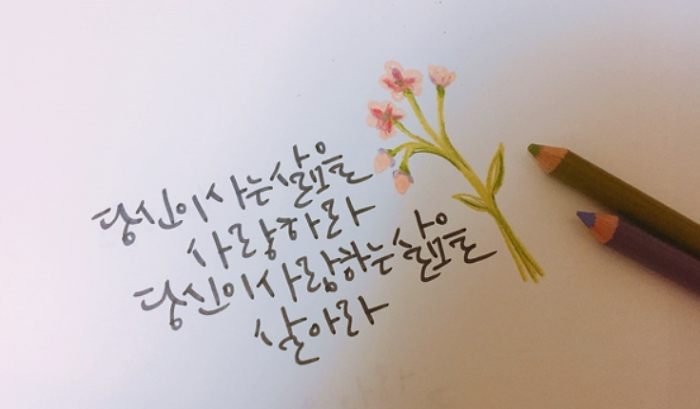 당신이 사는 삶을
사랑하라
당신이 사랑하는 삶을
살아라